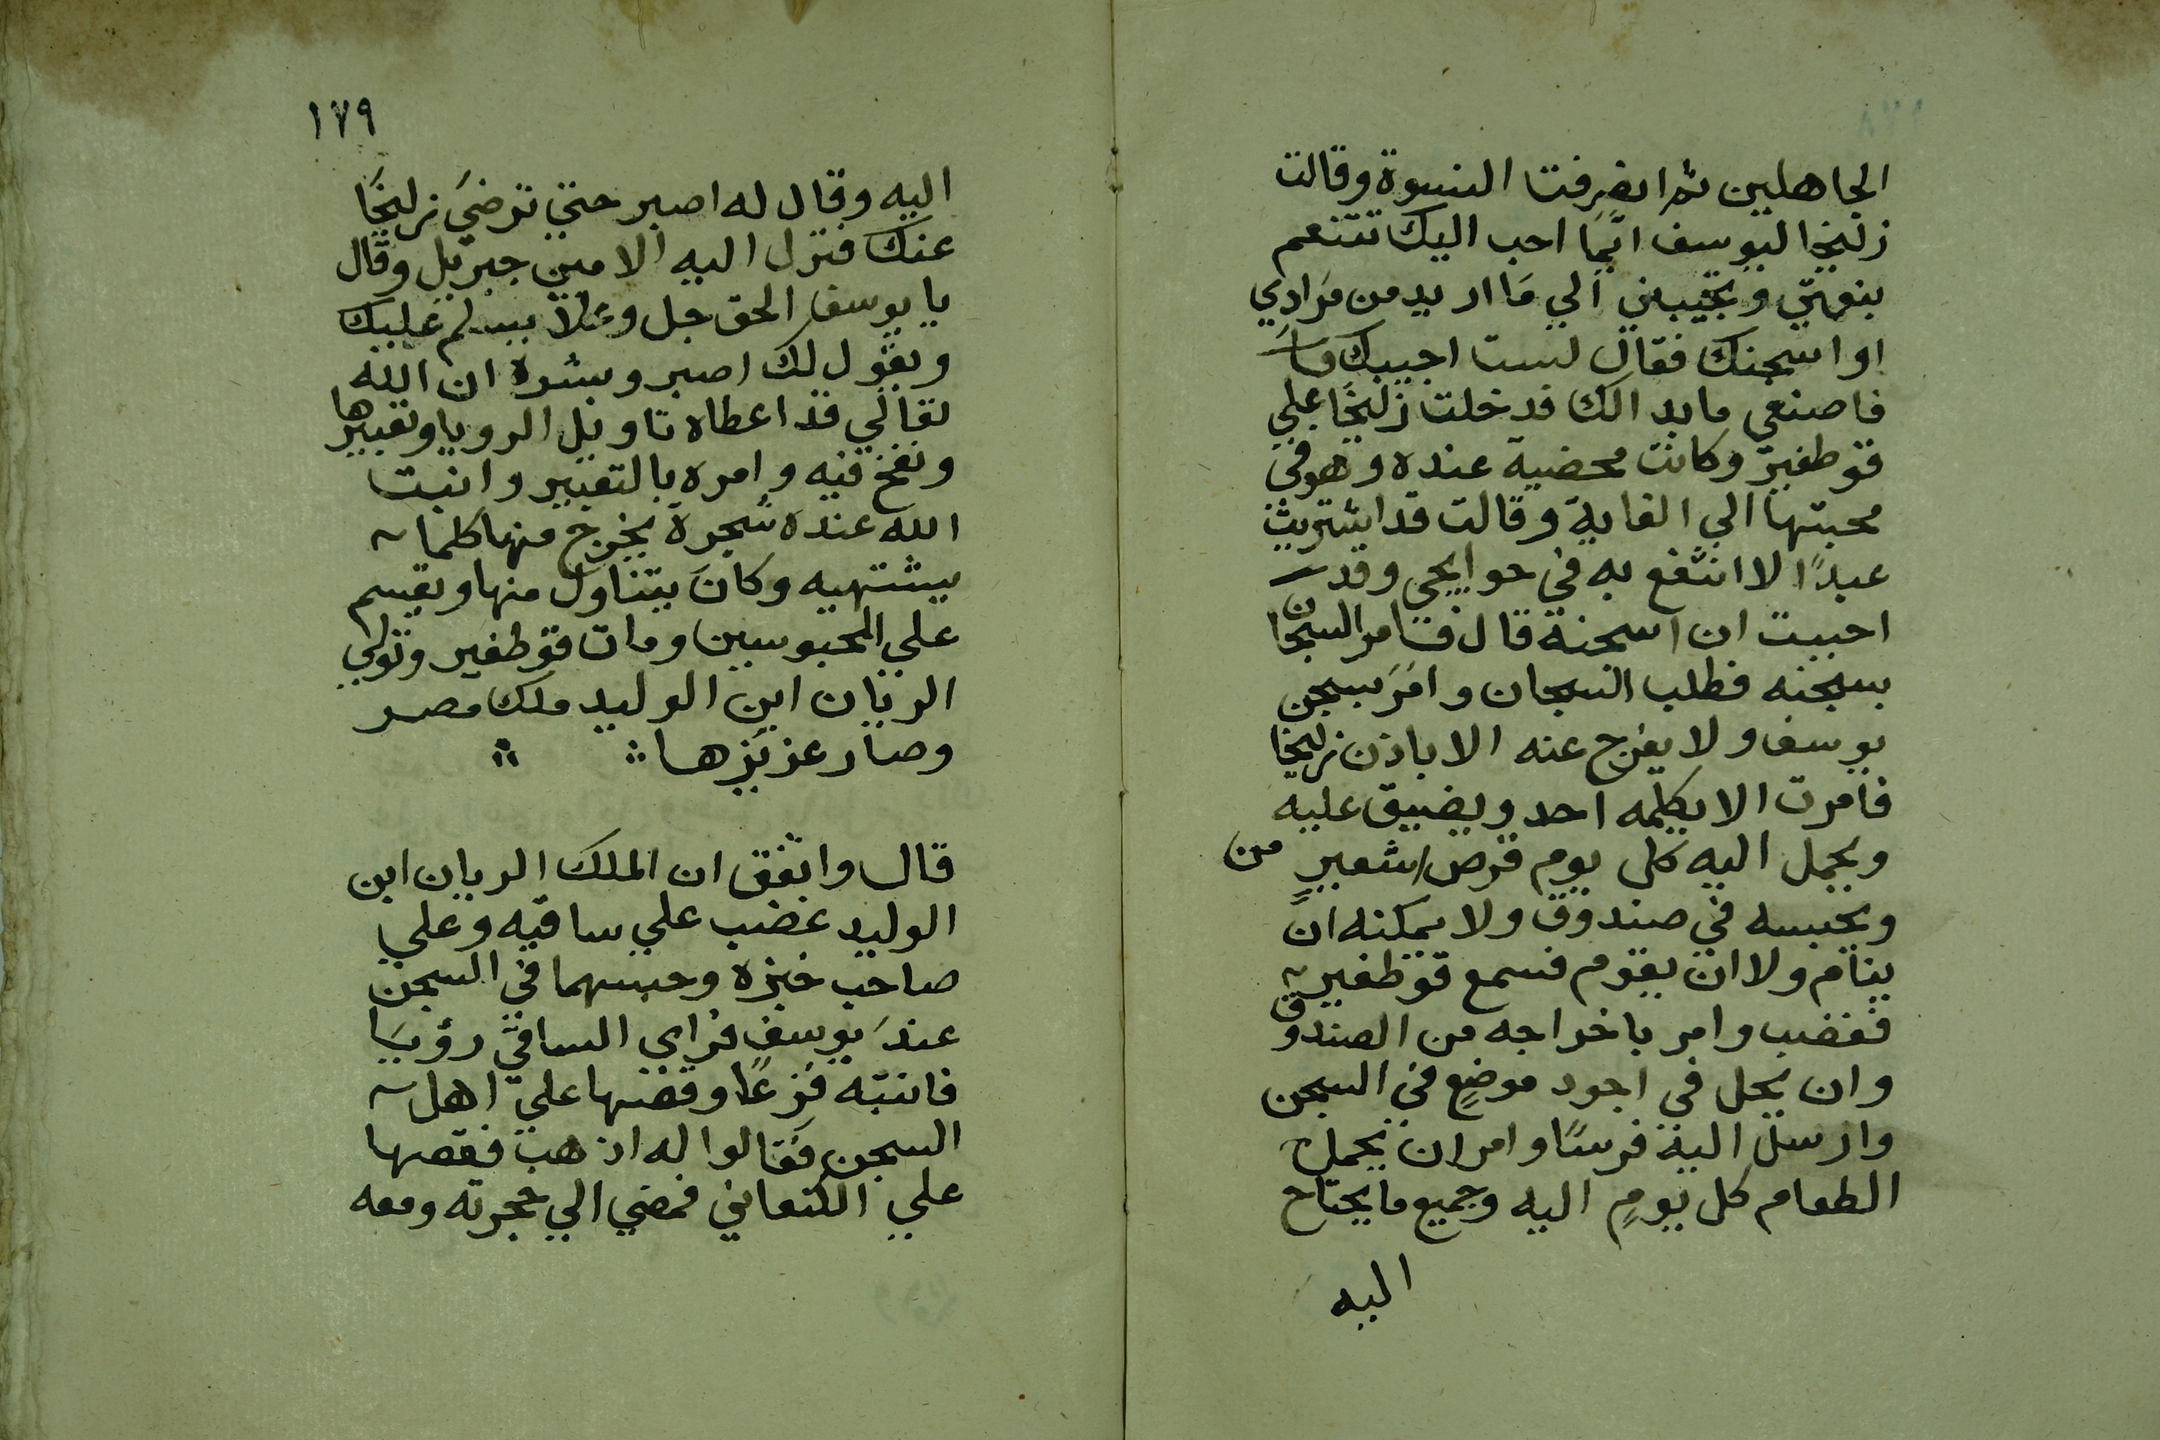 الجاهلين ثم انصرفت النسوة وقالت
زليخا ليوسف انما احب اليك تتنعم
بنعمتي وتجيبني الي ما اريد من مرادي
او اسجنك فقال لست اجيبك
فاصنعي ما بدالك فدخلت زليخا علي
قوطفير وكانت محضية عنده وهو في
محبتها الي الغاية وقالت قد اشتريت
عبدًا لا انتفع به في حوايجي وقد
احببت ان اسجنة قال فامر السجان
بسجنه فطلب السجان وامر بسجن
يوسف ولا يفرج عنه الا باذن زليخا
فامرت الا يكلمه احد ويضيق عليه
ويحمل اليه كل يوم قرص شعير من
ويحبسه في صندوق ولا يمكنه ان
ينام ولا ان يقوم فسمع قوطفير
فغضب وامر باخراجه من الصندوق
وان يحل في اجود موضع في السجن
وارسل اليه فرسًا وامر ان يحمل
الطعام كل يومٍ اليه وجميع ما يحتاح
اليه
١٧٩
اليه وقال له اصبر حتي ترضي زليخا
عنك فنزل اليه الامين جبريل وقال
يا يوسف الحق جل وعلا يسلم عليك
ويقول لك اصبر وبشره ان الله
تعالي قد اعطاه تاويل الرويا وتعبيرها
ونفخ فيه وامره بالتعبير وانبت
الله عنده شجرة يخرج منها كلما
يشتهيه وكان يتناول منها ويقسم
علي المحبوسين ومات قوطفير وتولي
الريان ابن الوليد ملك مصر
وصار عزيزها
قال واتفق ان الملك الريان ابن
الوليد غضب علي ساقيه وعلي
صاحب خبزه وحبسهما في السجن
عند يوسف فراي الساقي رؤيا
فانتبه فزعًا وقصها علي اهل
السجن فقالوا له اذهب فقصها
علي الكنعاني فمضي الي حجرته ومعه